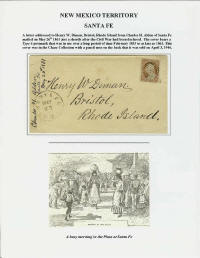 NEW MEXICO TERRITORY
SANTA FE
A letter addressed to Henry W. Diman, Bristol, Rhode Island from Charles H. Alden of Santa Fe
mailed on May 26th 1861 just a month after the Civil War had been declared. The cover bears a
Type I postmark that was in use over a long period of time February 1853 to at least 1861. This
cover was in the Chase Collection with a pencil note on the back that it was sold on April 3, 1946.
Henry W Diman
Bristol,
Rhode Island.
A busy morning in the Plaza at Santa Fe